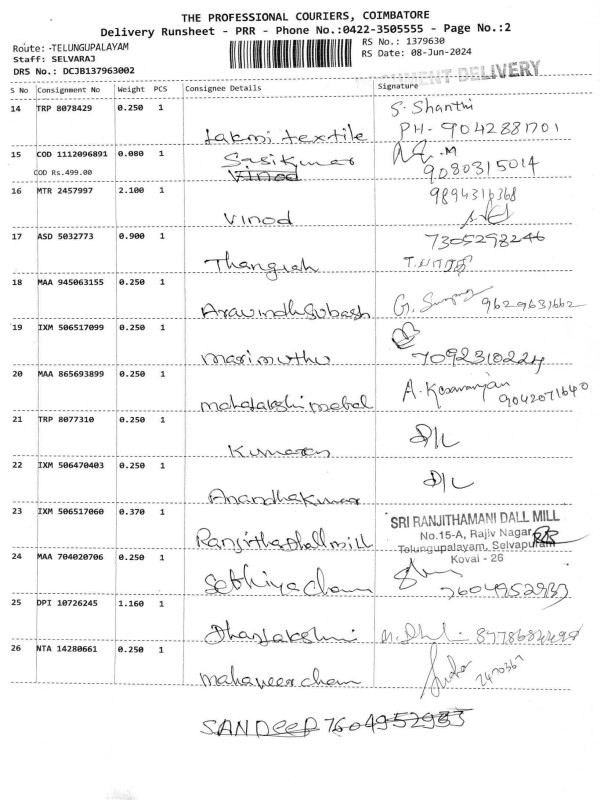 THE PROFESSIONAL COURIERS, COIMBATORE
Delivery Runsheet - PRR - Phone No.:0422-3505555 - Page No.:2
Route: -TELUNGUPALAYAM
Staff: SELVARAJ
DRS No.: DCJB137963002
RS No.: 1379630
RS Date: 08-Jun-2024
DELIVERY
S No Consignment No Weight PCS Consignee Details Signature
14 TRP 8078429 0.250 1
Lakmi textile
S. Shanthi
PH- 9042881701
15 COD 1112096891 0.080 1
COD Rs.499.00
Sasikumar
Vinod
9080315014
16 MTR 2457997 2.100 1
Vinod
9894316368
17 ASD 5032773 0.900 1
Thangiah
7305298246
18 MAA 945063155 0.250 1
Aravindh Subash
9629631662
19 IXM 506517099 0.250 1
marimuthu
7092310224
20 MAA 865693899 0.250 1
mahalakshi metal
A. Kesavanjan
9042071640
21 TRP 8077310 0.250 1
Kumaran
D/L
22 IXM 506470403 0.250 1
Anandhakumar
D/L
23 IXM 506517060 0.370 1
Ranjitha Dhall mill
SRI RANJITHAMANI DALL MILL
No.15-A, Rajiv Nagar,
Telungupalayam, Selvapuram
Kovai - 26
24 MAA 704020706 0.250 1
Sethiya Cham
7604952933
25 DPI 10726245 1.160 1
Dhanlakshmi
26 NTA 14280661 0.250 1
mahaveer cham
SANDEEP 7604952933